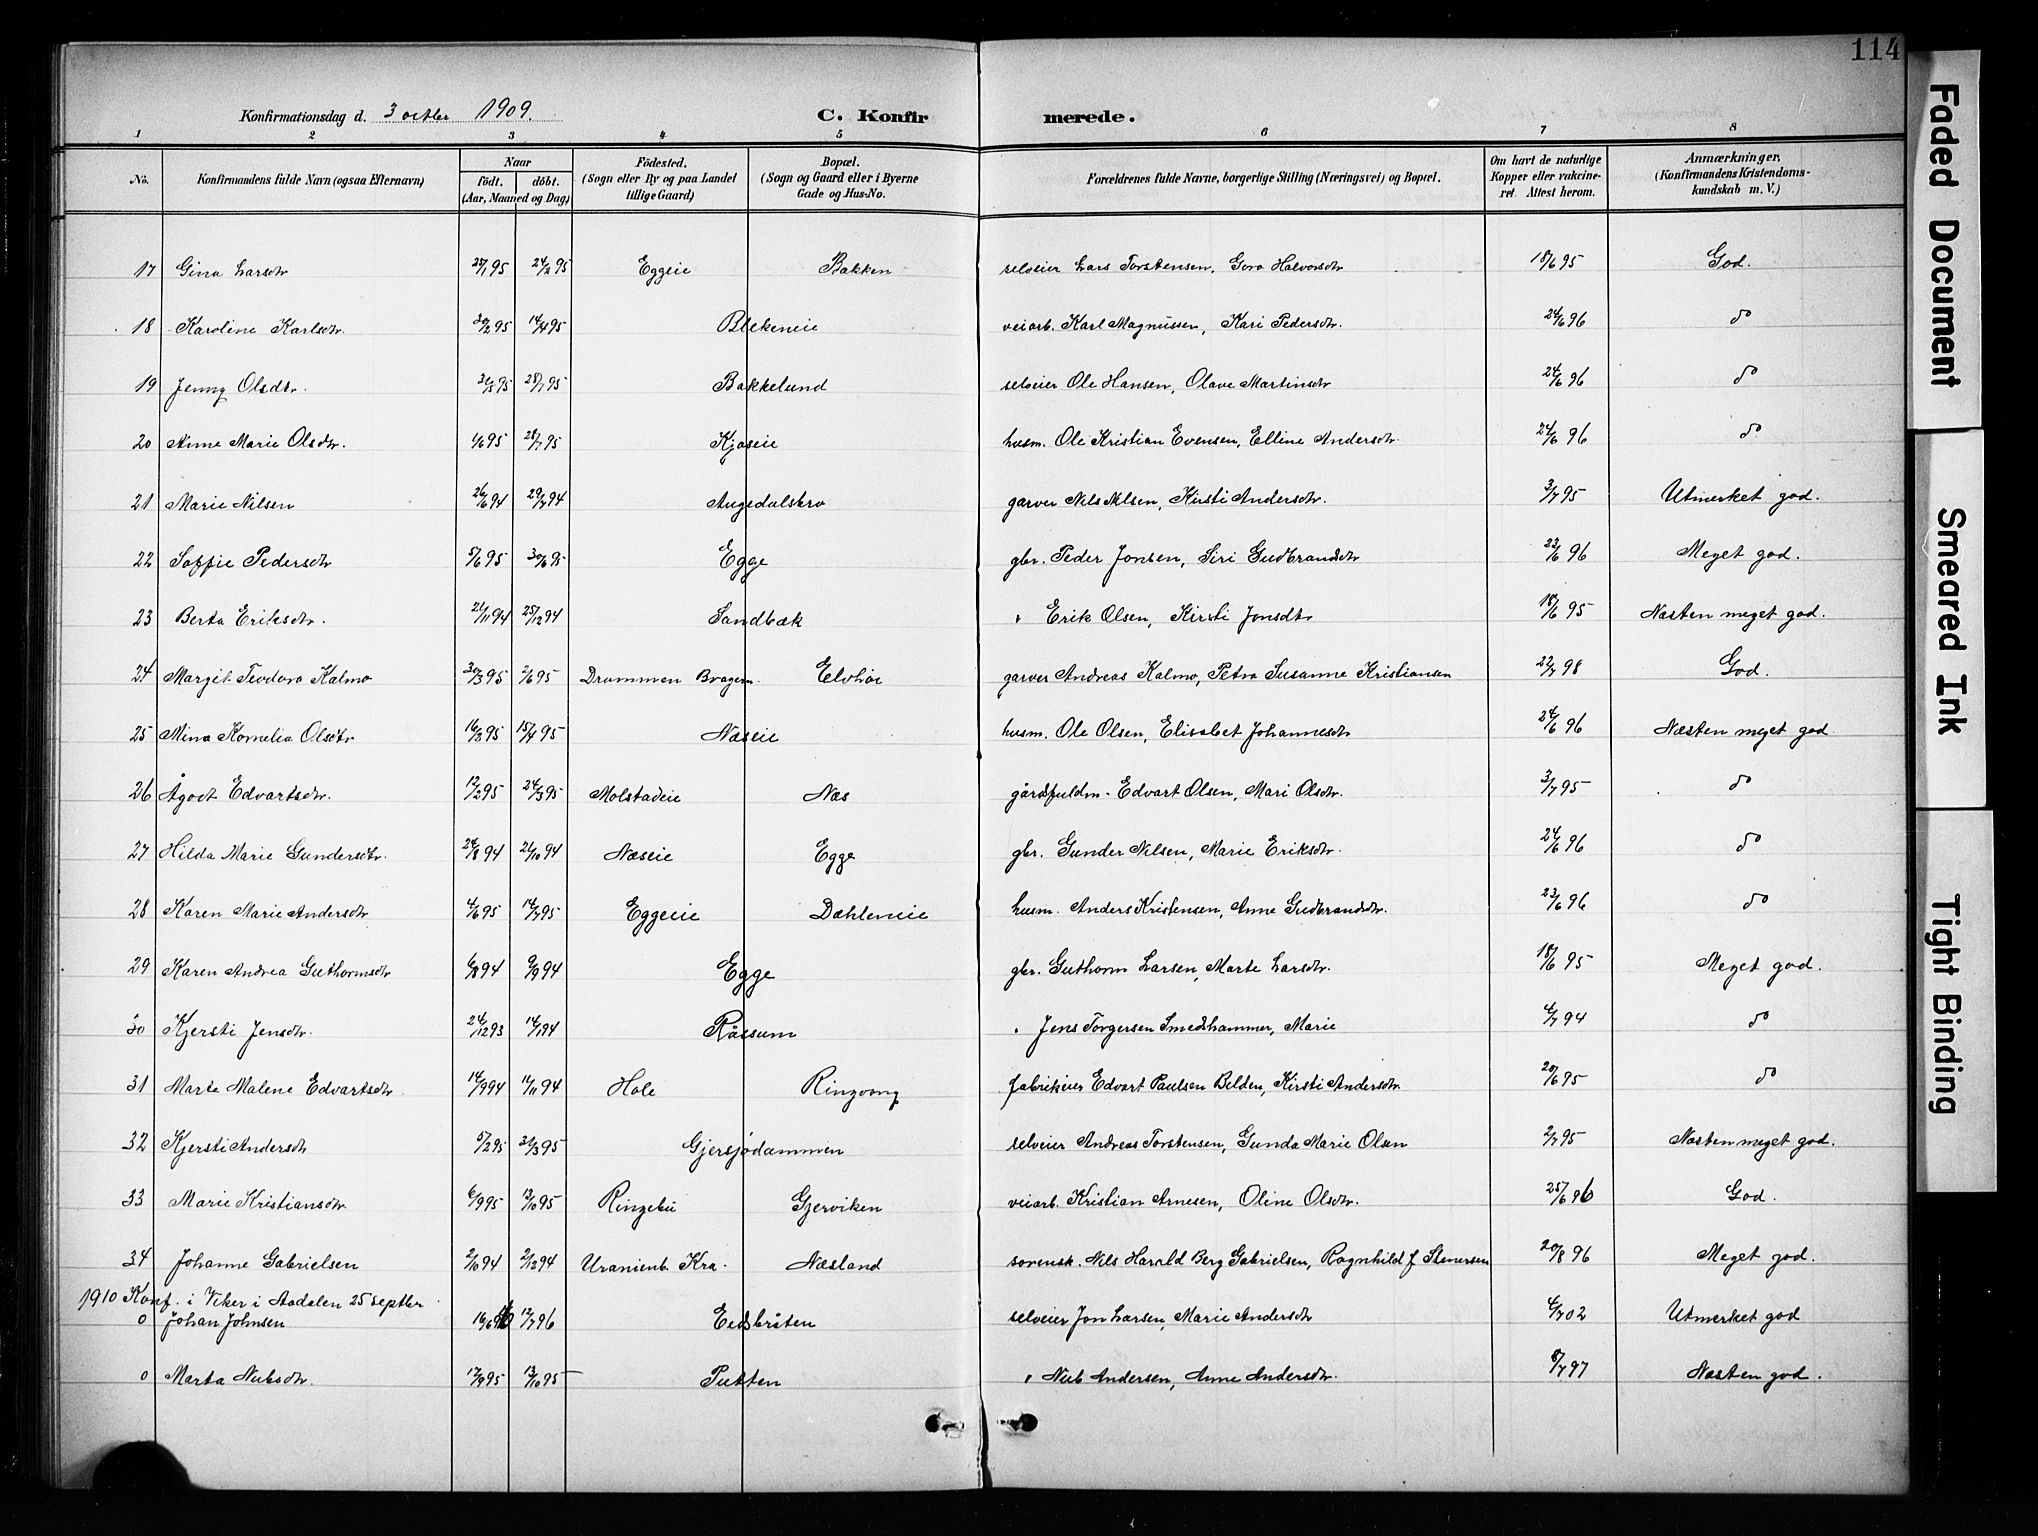 114
Konfirmationsdag d. 3 octber 1909. C. Konfirmerede.
1 2 3 4 5 6 7 8
No. Konfirmandens fulde Navn (ogsaa Efternavn) Naar födt. döbt. (Aar, Maaned og Dag) Födested. (Sogn eller By og paa Landet tillige Gaard) Bopæl. (Sogn og Gaard eller i Byerne Gade og Hus-No. Forældrenes fulde Navne, borgerlige Stilling (Næringsvei) og Bopæl. Om havt de naturlige Kopper eller vakcineret. Attest herom. Anmærkninger. (Konfirmandens Kristendomskundskab m. V.)
17 Gina Larsdtr 95 24/2 95 Eggeie Bakken selveier Lars Torstensen, Goro Halvorsdtr 18/6 95 God.
18 Karoline Karlsdtr. 95 14/4 95 Blekeneie veiarb. Karl Magnussen, Kari Pedersdtr. 24/6 96 do
19 Jenny Olsdtr. 31/5 95 28/7 95 Bakkelund selveier Ole Hansen, Olave Martinsdtr 24/6 96 do
20 Anne Marie Olsdtr. 1/6 95 28/7 95 Kjoseie husm. Ole Kristian Evensen, Elline Andersdtr. 24/6 96 do
21 Marie Nilsen 26/6 94 29/7 94 Augedalsbro garver Nils Nilsen, Kirsti Andersdtr. 3/7 95 Utmerket god.
22 Soffie Pedersdtr 5/6 95 30/6 95 Egge gbr. Peder Jonsen, Siri Gudbrandsdtr 23/6 96 Meget god.
23 Berta Eriksdtr. 21/11 94 25/12 94 Sandbæk " Erik Olsen, Kirsti Jonsdtr 18/6 95 Næsten meget god.
24 Margit Teodora Kalmo 30/3 95 2/6 95 Drammen Bragern. Elvhöi garver Andreas Kalmo, Petra Susanne Kristiansen 22/7 98 God.
25 Mina Kornelia Olsdtr 16/3 95 15/4 95 Næseie husm. Ole Olsen, Elisabet Johannesdtr 24/6 96 Næsten meget god.
26 Ågot Edvartsdtr. 12/2 95 24/3 95 Molstadeie Næs gårdsfuldm. Edvart Olsen, Mari Olsdtr. 3/7 95 do
27 Hilda Marie Gundersdtr. 24/8 94 21/10 94 Næseie Egge gbr. Gunder Nilsen, Marie Eriksdtr. 24/6 96 do
28 Karen Marie Andersdtr 4/6 95 14/7 95 Eggeie Dæhleneie husm. Anders Kristensen, Anne Gudbrandsdtr. 23/6 96 do
29 Karen Andrea Guthormsdtr 6/8 94 9/9 94 Egge gbr. Guthorm Larsen, Marte Larsdtr. 18/6 95 Meget god.
30 Kjersti Jensdtr. 24/12 93 14/1 94 Råssum " Jens Torgersen Smedshammer, Marie 4/7 94 do
31 Marte Malene Edvartsdtr 14/9 94 11 94 Hole Ringvong fabrikeier Edvart Paulsen Belden, Kirsti Andersdtr 20/6 95 do
32 Kjersti Andersdtr 5/2 95 31/3 95 Gjersjödammen selveier Andreas Torstensen, Gunda Marie Olsen 2/7 95 Næsten meget god.
33 Marie Kristiansdtr. 6/9 95 13/10 95 Ringebu Gjerviken veiarb. Kristian Arnesen, Oline Olsdtr. 25/6 96 God.
34 Johanne Gabrielsen 2/10 94 2/12 94 Uranienb. Kra. Næsland sorensk. Nils Harald Berg Gabrielsen, Ragnhild f. Stenersen 20/8 96 Meget god.
1910 Konf. i Viker i Aadalen 25 septber
0 Johan Johnsen 16/6 96 12/7 96 Eidsbråten selveier Jon Larsen, Marie Andersdtr 4/7 02 Utmerket god
0 Marta Nubsdtr. 17/9 95 13/10 95 Putten " Nub Andersen, Anne Andersdtr. 8/7 97 Næsten god.
Faded Document
Smeared Ink
Tight Binding